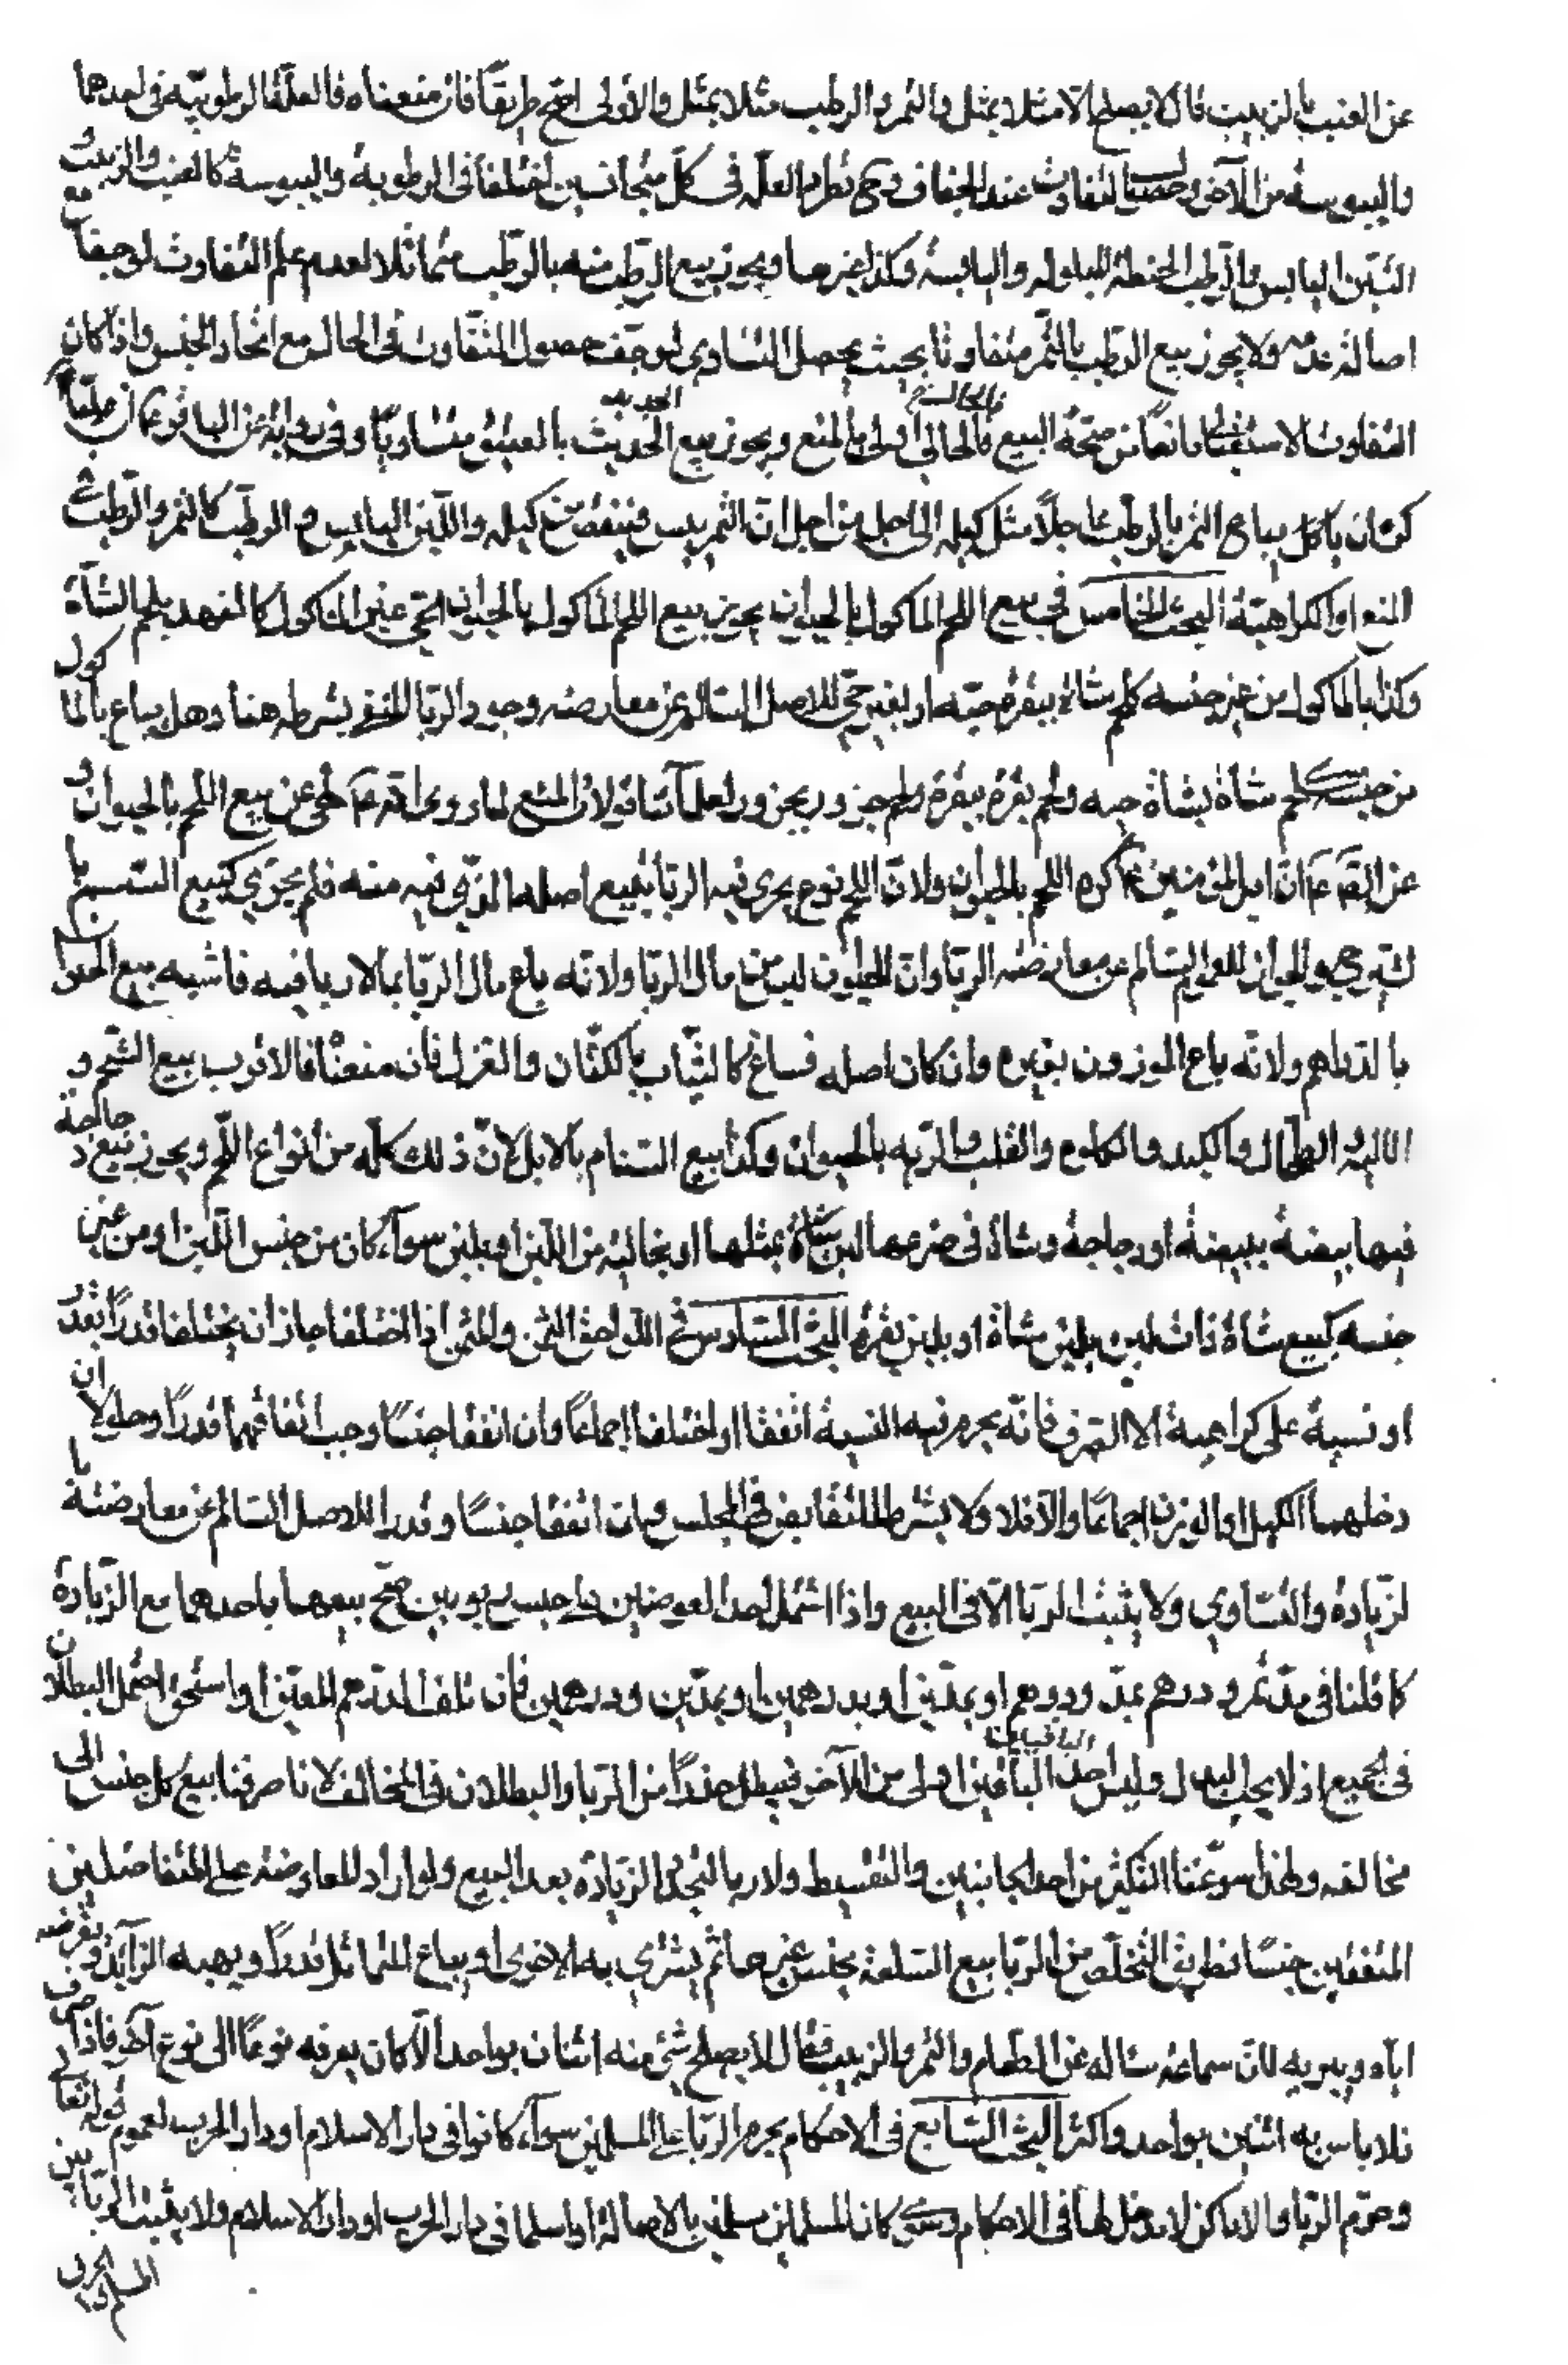 عن العنب بالزبيب قال لا يصلح الا مثلا بمثل والتمر والرطب مثلا بمثل والاولى اصح طريقًا فان منعناه فالعلة الرطوبية فى احدهما
واليبوسة من الآخر وحصول التفاوت عند الجفاف وح تطرد العلة فى كل متجانسين اختلفا فى الرطوبة واليبوسة كالعنب والزبيب و
التين اليابس والرطب الحنطة المبلولة واليابسة وكذا غيرها ويجوز بيع الرطب منه بالرطب متماثلا لعدم علم التفاوت لو جفا مع
اصالة عدمه ولا يجوز بيع الرطب بالتمر متفاوتا بحيث يحصل التساوى لو جف لحصول التفاوت فى الحال مع اتحاد الجنس واذا كان
التفاوت الاستقبالى مانعًا من صحة البيع فالحالى اولى بالمنع ويجوز بيع الحديث بالعتيق متساويًا وفى رواية عن الباقر ع ان عليًا ع
كره ان يباع التمر بالرطب عاجلًا مثل كيله الى اجل من اجل ان التمر ييبس فينقص من كيله واللبن اليابس والرطب كالتمر والرطب فى
المنع او الكراهية البحث الخامس فى بيع اللحم الماكول بالحيوان يجوز بيع اللحم الماكول بالحيوان الحى غير الماكول كالفهد بلحم الشاة
وكذا بالماكول من غير جنسه كلحم شاة ببقرة حية او بعير حى للاصل السالم عن معارضة وجود الربا لانتفاء شرطه هنا وهل يباع بالماكول
من جنسه كلحم شاة بشاة حيه ولحم بقرة ببقرة ولحم جزور بجزور لعلمائنا قولان المنع لما روى انه ع نهى عن بيع اللحم بالحيوان و
عن الصادق ع ان امير المؤمنين ع كره اللحم بالحيوان ولان اللحم نوع يجرى فيه الربا بيع باصله الذى فيه منه فلم يجز كبيع السمسم با
لشيرج والجواز للعموم السالم عن معارضة الربا وان الحيوان ليس من مال الربا ولانه باع مال الربا بمالا ربا فيه فاشبه بيع الحيوان
بالدراهم ولانه باع الموزون بغيره وان كان اصله فساغ كالثياب بالكتان والغزل فان منعنا فالاقرب بيع الشحم و
الالية والطحال والكبد والكلوة والقلب والرية بالحيوان وكذا بيع السنام بالابل لان ذلك كله من انواع اللحم ويجوز بيع دجاجة
فيها بيضة ببيضة او دجاجة وشاة فى ضرعها لبن بشاة بمثلها او بخالية من اللبن او بلبن سوآء كان من جنس اللبن او من غير
جنسه كبيع شاة ذات لبن بلبن شاة او بلبن بقرة البحث السادس فى اللواحق الثمن والمثمن اذا اختلفا جاز ان يختلفا قدرًا نقد
او نسية على كراهية الا الصرف فانه يحرم فيه النسية اتفقا او اختلفا اجماعًا وان اتفقا جنسًا وجب اتفاقهما قدرًا وحلولا ان
دخلهما الكيل او الوزن اجماعًا والا فلا ولا يشترط التقابض فى المجلس وان اتفقا جنسًا وقدرا للاصل السالم عن معارضة با
لزيادة والتساوى ولا يثبت الربا الا فى البيع واذا اشتمل احد العوضين على جنسين ربويين صح بيعهما باحدهما مع الزيادة
كما قلنا فى مد تمر ودرهم بمد ودرهم او بمدين او بدرهمين او بمدين ودرهمين فان تلف الدرهم المعين او استحق احتمل البطلان
فى الجميع اذ لا يجب البدل وليس احد الباقيين اولى من الآخر فيبطل حذرًا من الربا والبطلان فى المخالف لانا صرفنا بيع كل جنس الى
مخالفه ولهذا سوغنا التكثير من احد الجانبين والتقسيط ولا ربا لتجدد الزيادة بعد البيع ولو اراد المعاوضة على المتفاضلين
المتفقين جنسًا فطريق التخلص من الربا بيع السلعة بجنس غيرها ثم يشترى به الاخرى او يباع المتماثل قدرًا ويهبه الزايد او يقرضه
اياه ويبريه لان سماعة ساله عن الطعام والتمر والزبيب فقال لا يصلح شئ منه اثنان بواحد الا كان يصرفه نوعًا الى نوع آخر فاذا صرف
فلا باس به اثنين بواحد واكثر البحث السابع فى الاحكام يحرم الربا على المسلمين سوآء كانوا فى دار الاسلام او دار الحرب لعموم قوله تعالى
وحرم الربا والاماكن لا مدخل لها فى الاحكام وسواء كانا المسلمين مسلمين بالاصالة او اسلما فى دار الحرب او دار الاسلام ولا يثبت الربا بين
المسلم والحربى